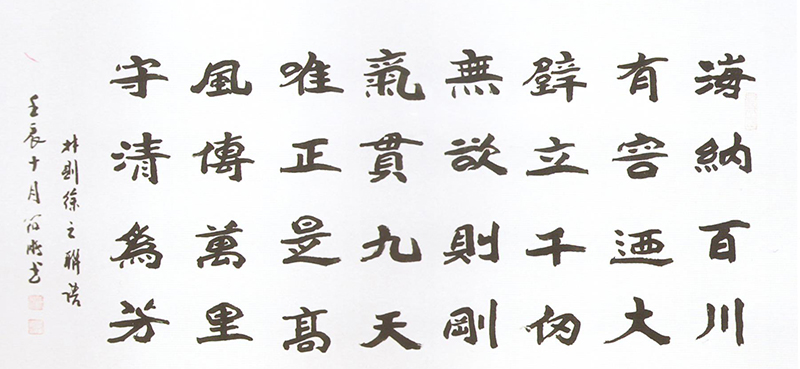 海納百川
有容迺大
壁立千仞
無欲則剛
氣貫九天
唯正是高
風傳萬里
守清為芬
林則徐之聯語
壬辰十月